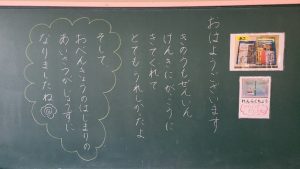 おはようございます
きのうもぜんいん
げんきにがっこうに
きてくれて
とてもうれしかったよ
そして、
おべんきょうのはじまりの
あいさつがじょうずに
なりましたね
れんらくちょう